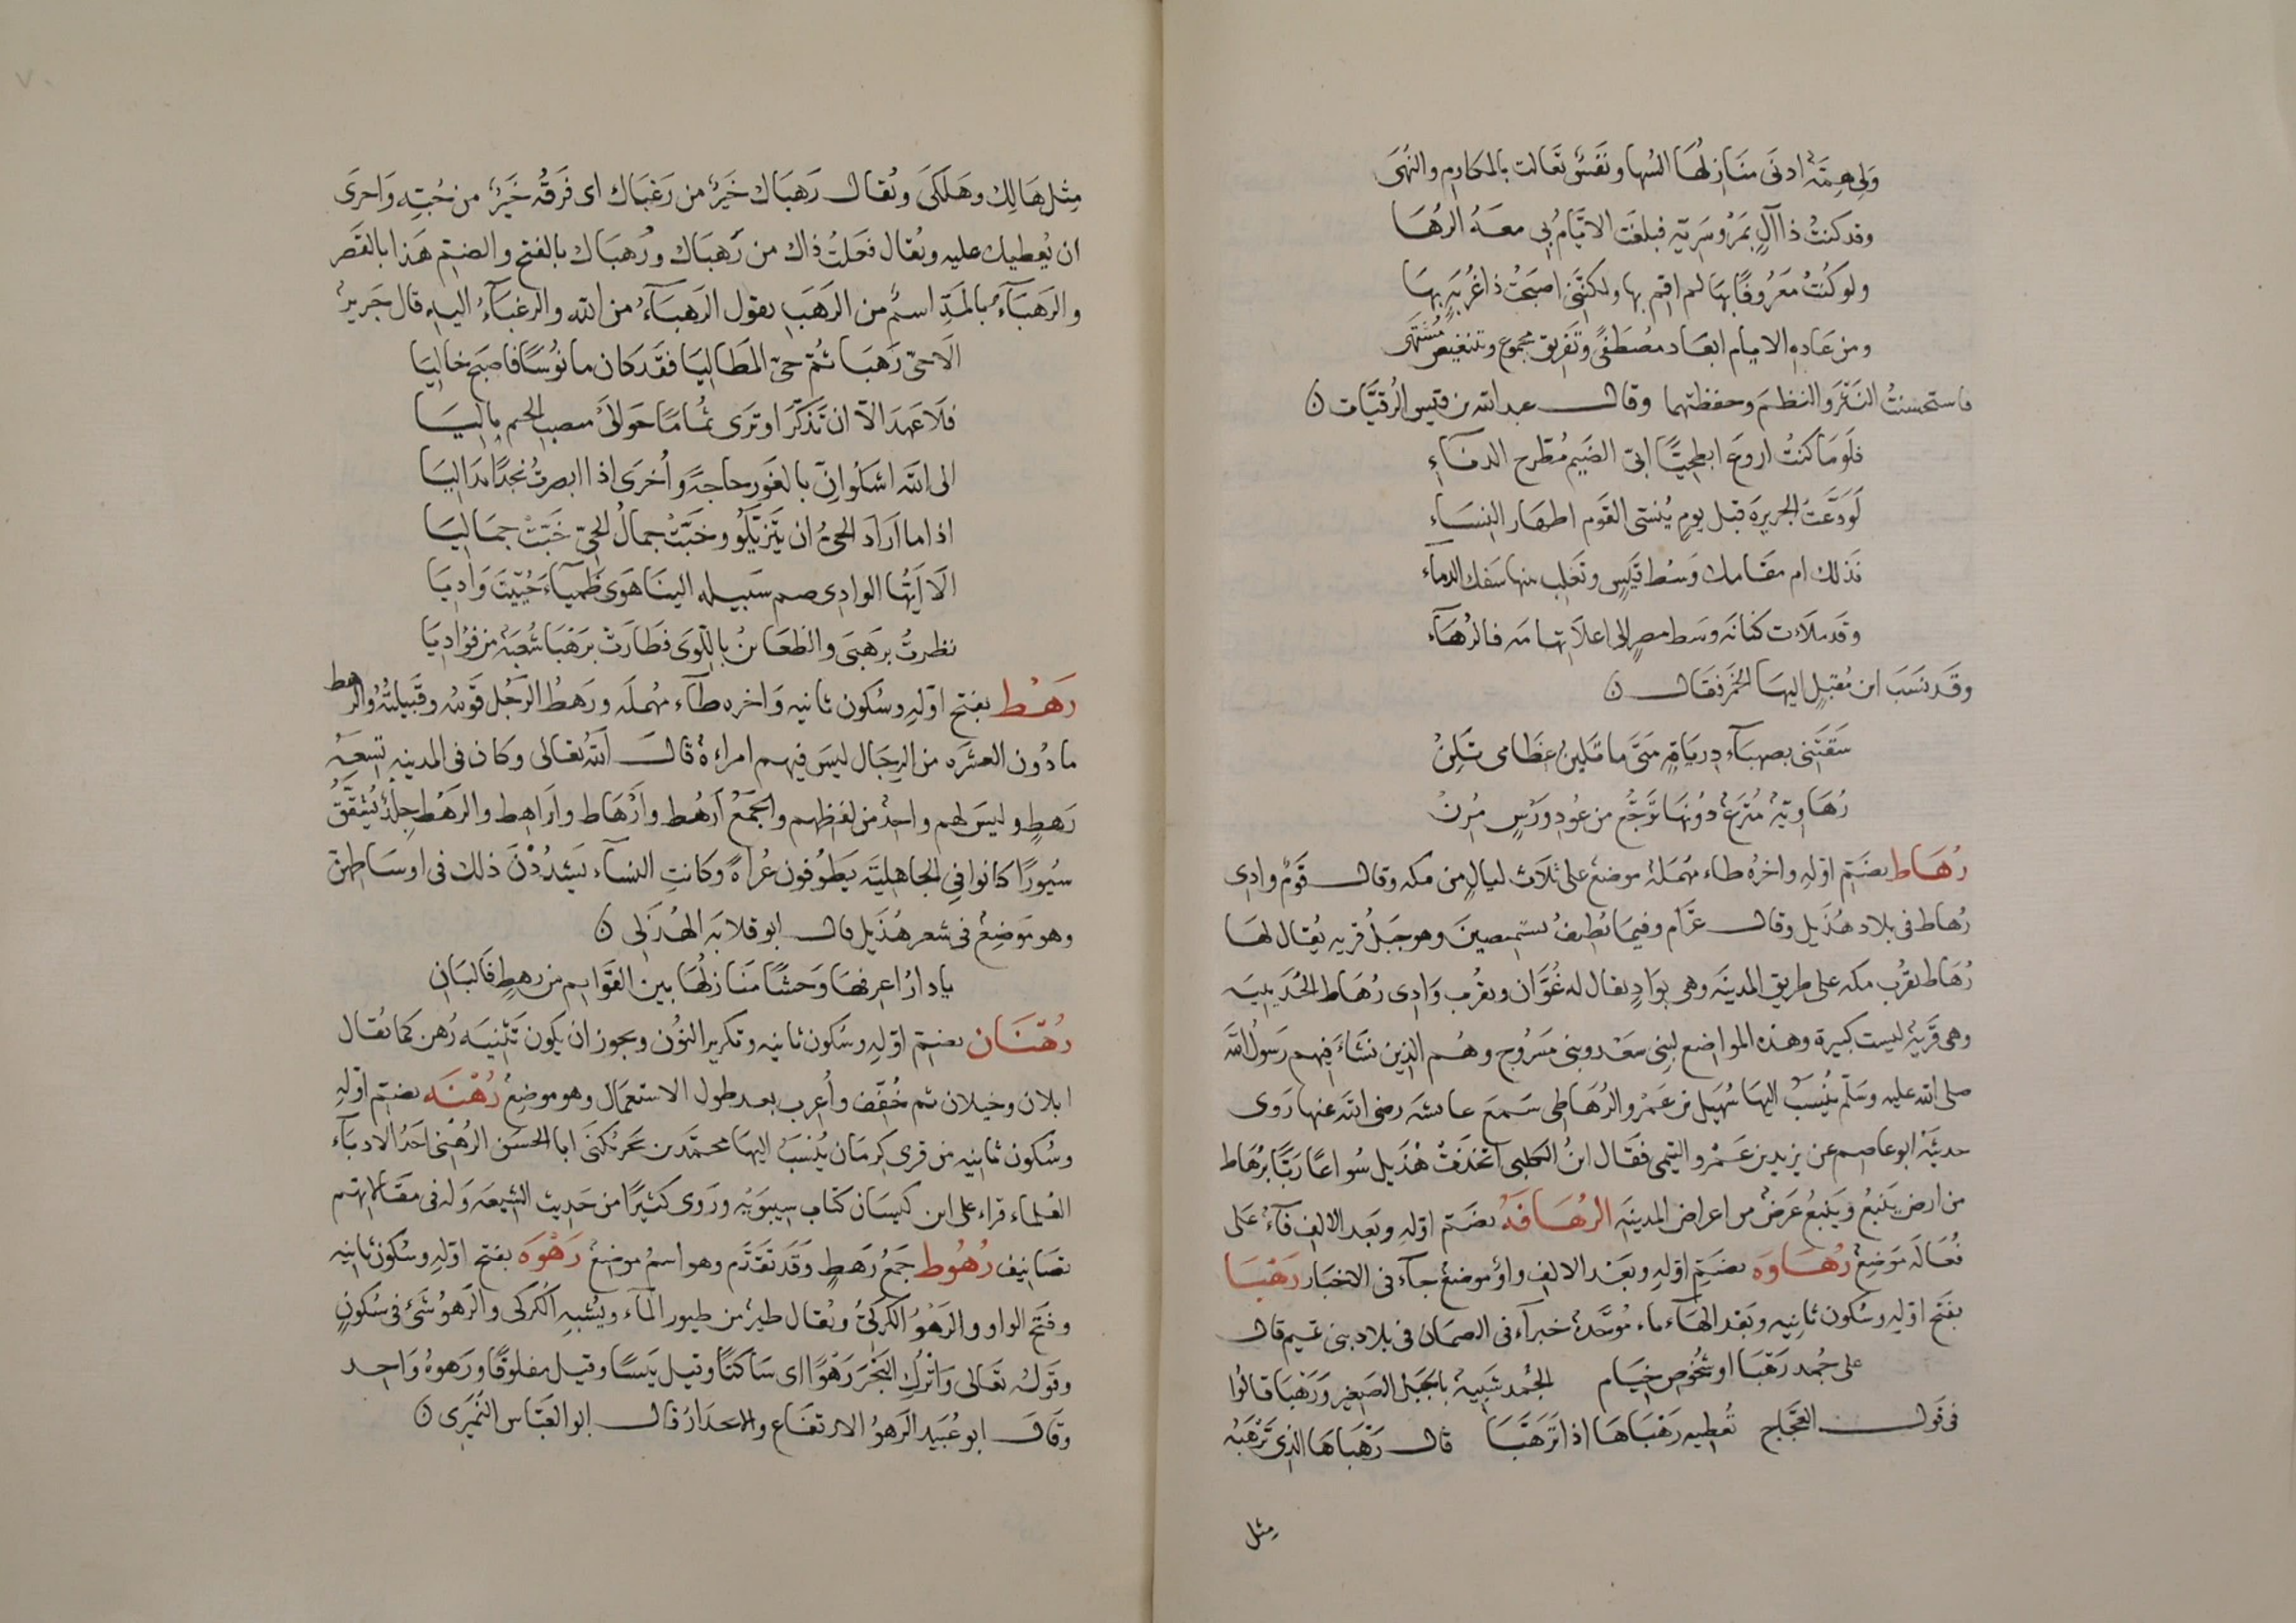 وَلي هِمَّةٌ ادنَى مَنَازلُهَا السُها ونَفسٌ تَعَالت بالمكَارم والنُهَى
وقد كنتُ ذا آلٍ بمَرْو سَرِيّةٍ فبلغَت الايّامُ بي معَهُ الرُهَا
ولو كُنتُ مَعرُوفًا بهَا لم اقم بها ولكنَّنى اصبَحتُ ذا غُربَةٍ بهَا
ومن عَادةِ الايام ابعَاد مصُطَفىً وتَفريق مجموع وتنغيص مُشتَهى
فاستحسَنتُ النَثرَ والنظمَ وحفظتهما وقال عبد الله بن قيس الرُقيَّات ن
فلَومَا كنتُ اروعَ ابطحِيًّا ابىّ الضَيم مُطّرح الدنَاءِ
لَوَدَّعتُ الجزيرة قبل يومٍ يُنسى القَوم اطهَار النِسَاءِ
فَذلك ام مقَامك وَسْط قَيسٍ وتَغلِب بينها سَفك الدماء
وقد ملأت كنانَه وسط مصرٍ الى اعلاَ تهامَه فالرُهَآء
وقَد نسَبَ ابن مُقبِل اليهَا الخمَر فقَال ن
سَقَتنى بصهبَآء دِريَاقةٍ مَتَى ما تليّن عِظَامى تَلِنْ
رُهَاويّةٌ مُترَعٌ دَونهَا تَرَجّع من عُودِ وَرَسٍ مُرِنْ
رُهَاط بضَمّ اوّلهِ واخرُه طاء مُهمَلة موضعٌ على ثلاث ليالٍ من مكه وقال قَومٌ وادى
رُهاط فى بلاد هُذَيل وقال عَرَّام وفيمَا يُطيفُ بشمنصيرَ وهو جَبلُ قريه يُقال لهَا
رُهَاط بقُرب مكه على طريق المدينَه وهى بوَادٍ يقال له غُرَّان وبقُرب وَادى رُهَاط الحُدَيبيه
وهى قَريةٌ ليست كبيرة وهذه المواضع لبنى سَعْد وبنى مَسْرُوح وهُم الذين نشَأَ فِيهم رَسُولُ اللَّه
صلى الله عليه وسَلّم يُنسَبُ اليهَا سُهَيل بن عَمْرو الرُهَاطى سَمعَ عائشَه رضى الله عنها رَوى
حديثَهُ ابو عاصم عن يزيد بن عَمْرو التيمى فقَال ابنُ الكلبى اتخذَتْ هُذَيل سُواعًا رَبًّا برُهَاط
من ارض يَنبُع ويَنبُعُ عَرضٌ من اعراض المدينَه الرُهَافَهُ بضَمّ اوّلهِ وبَعدَ الالِف فآءٌ على
فُعَالَه مَوضِعٌ رُهَاوَه بضَمّ اوّلهِ وبعَد الالِف واوٌ موضعٌ جآء فى الاخبَار رَهْبَا
بفَتح اوّلِه وسُكون ثانِيه وبَعد الهَآء باء مُوَحَّدةٌ خبرآء فى الصمَان فى بلاد بنى تميم قال
على جُمد رَهْبَا او شُخُوص خيَام الجُمد شَبيهٌ بالجَبل الصَغير ورَهْبَا قالُوا
فى قَول العَجّاج تُعطيه رَهْبَاهَا اذا تَرَهَّبَا قال رَهْبَاهَا الذى تَرْهَبُه
مِثل
مِثل هَالِك وهَلكَى ويُقال رَهبَاك خَيرٌ من رَغبَاك اى فرَقُه خَيرٌ من حُبّه وَاحرَى
ان يُعطيك عليه ويُقال فعَلتُ ذاك من رَهبَاك ورُهبَاك بالفتح والضم هَذا بالقَصر
والرَهبَآءُ بالمَدّ اسمٌ من الرَهَب يقول الرَهبَآءُ من الله والرغبَآءُ اليه قال جَريرٌ
الَا حَىّ رَهبَا ثم حَىّ المطَاليَا فقَد كان مانُوسًا فاصبَح خاليَا
فلَا عَهدَ الاّ ان تذكّرَ او ترَى ثُمامًا حَوالَىْ منصب الخيم بِاليَا
الى اللَّه اشكُو ان بالغَور حاجةً وأخرَى اذا ابصرتُ نجدًا بدَا ليَا
اذا ما ارَادَ الحىُّ ان يَتَزيّلُو وخبَّت جمالُ الحَىّ خبَّتْ جمَاليَا
الَا اَيُّهَا الوادى ضم سَيله الينَا هَوى ظَميآءَ حُيّيتَ وَاديَا
نظرتُ برَهبَى والظعَائنُ باللّوَى فطَارَتْ برَهْبَا شُعبَةٌ من فؤاديَا
رَهْط بفتح اوّلهِ وسُكون ثانيه وَاخره طآء مُهمَلَه ورَهطُ الرَجُل قَومُه وقَبيلتُهُ والرهط
ما دُون العشَرَه من الرِجَال ليسَ فيهم امراءةٌ قال اللَّه تعَالى وكان فى المدينةِ تِسعَةُ
رَهطٍ وليسَ لهم واحدٌ من لفظهم والجَمعُ اَرهُط واَرْهَاط واَراهِط والرَهْط جِلدٌ يُشقَّقُ
سُيورًا كانوا فى الجاهليَّه يَطوُفون عُراةً وكانتِ النسآء يَشدُدْنَ ذلك فى اوسَاطهنّ
وهو مَوضِعٌ فى شعر هُذَيل قال ابو قلابَه الهُذَلى ن
يا دارُ اعرفهَا وَحشًا مَنَازلُهَا بين القَوَايم من رهطٍ فَالبَان
رُهْنَان بضم اوّلهِ وسُكون ثانيه وتكرير النوُن ويجوز ان يكون تَثنيَه رُهن كما يُقال
ابلان وخيلان ثم خُفّف وأُعرب بعد طول الاستعمَال وهو موضِعٌ رُهْنَه بضَمّ اوّلهِ
وسُكون ثانِيه من قرى كِرمَان يُنسَبُ اليهَا محمّد بن بَحر يُكنَى ابا الحسَن الرُهْنى احَدُ الادبَآء
العُلماء قراء على ابن كيسَان كتَاب سِيبَوَيْه ورَوى كثيرًا من حَديث الشيعَه وَله فى مقَالاتهم
تصَانيف رُهُوط جَمعُ رَهطٍ وقَد تقَدّم وهو اسمُ موضِعٍ رَهْوَه بفتح اوّلهِ وسُكون ثانيِه
وفتَح الواو والرَهْوُ الكركىُّ ويُقال طيرٌ من طيور المآء ويُشبِه الكُركى والرَهوُ شَىٌ فى سُكونٍ
وقَولُه تعَالى وَاتْرُك البَحْرَ رَهْوًا اى سَاكنًا وقيل يَبسًا وقيل مفلوقًا ورَهوهُ وَاحد
وقال ابو عُبَيد الرَهوُ الارتفَاع والانحدَار قال ابو العَبّاس النُمَيرى ن